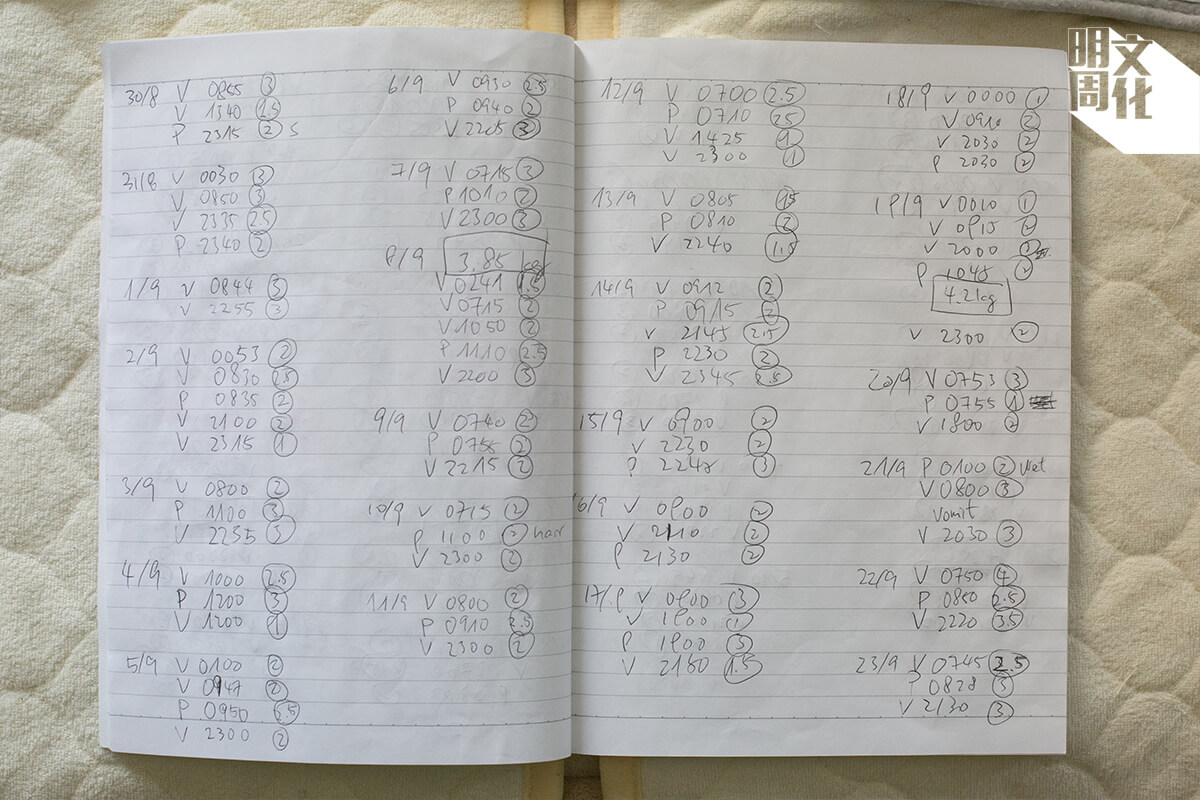 30/8 V 0855 3
V 1340 1.5
P 2315 2 S
31/8 V 0030 3
V 0850 3
V 2335 2.5
P 2340 2
1/9 V 0844 3
V 2255 3
2/9 V 0053 2
V 0830 2.5
P 0835 2
V 2100 2
V 2315 1
3/9 V 0800 2
P 1100 3
V 2255 3
4/9 V 1000 2.5
P 1200 3
V 1200 1
5/9 V 0100 2
V 0947 2
P 0950 2.5
V 2300 2
6/9 V 0930 2.5
P 0940 2
V 2205 3
7/9 V 0715 3
P 1010 2
V 2300 3
8/9 3.85 kg
V 0241 1.5
V 0715 2
V 1050 2
P 1110 2.5
V 2200 3
9/9 V 0740 2
P 0755 2
V 2215 2
10/9 V 0715 2
P 1100 2
V 2300 2
11/9 V 0800 2
P 0910 2.5
V 2300 2
12/9 V 0700 2.5
P 0710 2.5
V 1425 1
V 2300 1
13/9 V 0805 1.5
P 0810 2
V 2240 1.5
14/9 V 0912 2
P 0915 2
V 2145 2.5
P 2230 2
V 2345 2.5
15/9 V 0900 2
V 2230 2
P 2247 3
16/9 V 0900 2
V 2110 2
P 2130 2
17/9 V 0900 3
V 1900 1
P 1900 3
V 2150 1.5
18/9 V 0000 1
V 0910 2
V 2030 2
P 2030 2
19/9 V 0010 1
V 0915 2
V 2000
P 1045 2
4.2kg
V 2300 2
20/9 V 0753 3
P 0755 1
V 1800 2
21/9 P 0100 2 Wet
V 0800 3
Vomit
V 2030 3
22/9 V 0750 4
P 0850 2.5
V 2220 3.5
23/9 V 0745 2.5
P 0828 3
V 2130 3
明周文化